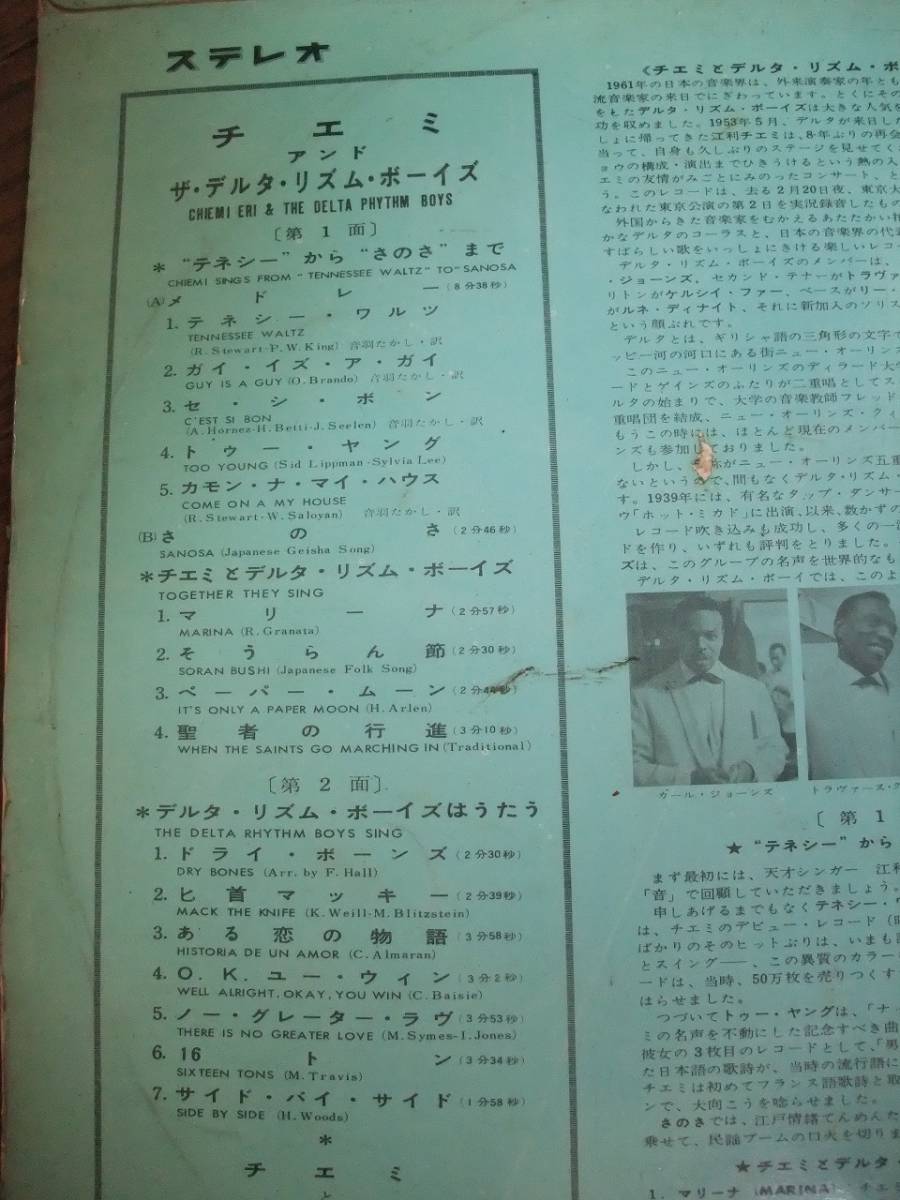 ステレオ
チエミ
アンド
ザ・デルタ・リズム・ボーイズ
CHIEMI ERI & THE DELTA PHYTHM BOYS
〔第1面〕
＊“テネシー”から“さのさ”まで
CHIEMI SINGS FROM “TENNESSEE WALTZ” TO “SANOSA
(A)メドレー(8分38秒)
1. テネシー・ワルツ
TENNESSEE WALTZ
(R. Stewart-P. W. King) 音羽たかし・訳
2. ガイ・イズ・ア・ガイ
GUY IS A GUY (O. Brando) 音羽たかし・訳
3. セ・シ・ボン
C'EST SI BON
(A. Hornez-H. Betti-J. Seelen) 音羽たかし・訳
4. トゥー・ヤング
TOO YOUNG (Sid Lippman-Sylvia Lee)
5. カモン・ナ・マイ・ハウス
COME ON A MY HOUSE
(R. Stewart-W. Saloyan) 音羽たかし・訳
(B)さのさ(2分46秒)
SANOSA (Japanese Geisha Song)
＊チエミとデルタ・リズム・ボーイズ
TOGETHER THEY SING
1. マリーナ(2分57秒)
MARINA (R. Granata)
2. そうらん節(2分30秒)
SORAN BUSHI (Japanese Folk Song)
3. ペーパー・ムーン(2分44秒)
IT'S ONLY A PAPER MOON (H. Arlen)
4. 聖者の行進(3分10秒)
WHEN THE SAINTS GO MARCHING IN (Traditional)
〔第2面〕
＊デルタ・リズム・ボーイズはうたう
THE DELTA RHYTHM BOYS SING
1. ドライ・ボーンズ(2分30秒)
DRY BONES (Arr. by F. Hall)
2. 匕首マッキー(2分39秒)
MACK THE KNIFE (K. Weill-M. Blitzstein)
3. ある恋の物語(3分58秒)
HISTORIA DE UN AMOR (C. Almaran)
4. O.K. ユー・ウィン(3分2秒)
WELL ALRIGHT, OKAY, YOU WIN (C. Baisie)
5. ノー・グレーター・ラヴ(3分53秒)
THERE IS NO GREATER LOVE (M. Symes-I. Jones)
6. 16トン(3分34秒)
SIXTEEN TONS (M. Travis)
7. サイド・バイ・サイド(1分58秒)
SIDE BY SIDE (H. Woods)
＊
チエミ
と
《チエミとデルタ・リズム・ボ
1961年の日本の音楽界は、外来演奏家の年とも
流音楽家の来日でにぎわっています。とくにその
をもたデルタ・リズム・ボーイズは大きな人気を
功を収めました。1953年5月、デルタが来日した
しょに帰ってきた江利チエミは、8年ぶりの再会
当って、自身も久しぶりのステージを見せてく
ョウの構成・演出までひきうけるという熱の入
エミの友情がみごとにみのったコンサート、と
う。このレコードは、去る2月20日夜、東京大
なわれた東京公演の第2日を実況録音したもの
外国からきた音楽家をむかえるあたたかい
かなデルタのコーラスと、日本の音楽界の代表
すばらしい歌をいっしょにきける楽しいレコ
デルタ・リズム・ボーイズのメンバーは、
・ジョーンズ、セカンド・テナーがトラヴァ
リトンがケルシイ・ファー、ベースがリー・
がルネ・ディナイト、それに新加入のソリス
という顔ぶれです。
デルタとは、ギリシャ語の三角形の文字で
ッピー河の河口にある街ニュー・オーリンズ
このニュー・オーリンズのディラード大学
ードとゲインズのふたりが二重唱としてス
ルタの始まりで、大学の音楽教師フレッド・
重唱団を結成、ニュー・オーリンズ・クィ
もうこの時には、ほとんど現在のメンバー
ンズも参加しておりました。
しかし、 がニュー・オーリンズ五重
ないというので、間もなくデルタ・リズム・
す。1939年には、有名なタップ・ダンサー
ウ「ホット・ミカド」に出演、以来、数かずの
レコード吹き込みも成功し、多くの一流
ドを作り、いずれも評判をとりました。
ズは、このグループの名声を世界的なも
デルタ・リズム・ボーイでは、このよ
カール・ジョーンズ
トラヴァース・ク
〔第1
★“テネシー”から
まず最初には、天才シンガー 江利
「音」で回顧していただきましょう。
申しあげるまでもなくテネシー・ワ
は、チエミのデビュー・レコード
ばかりのそのヒットぶりは、いまも
とスイング──、この異質のカラー
ードは、当時、50万枚を売りつくす
はらせました。
つづいてトゥー・ヤングは、「ナッ
ミの名声を不動にした記念すべき曲
彼女の3枚目のレコードとして、「男
た日本語の歌詩が、当時の流行語に
チエミは初めてフランス語歌詩と取
ンで、大向こうを唸らせました。
さのさでは、江戸情緒てんめんた
乗せて、民謡ブームの口火を切りま
★チエミとデルタ
1. マリーナ (MARINA) チエ